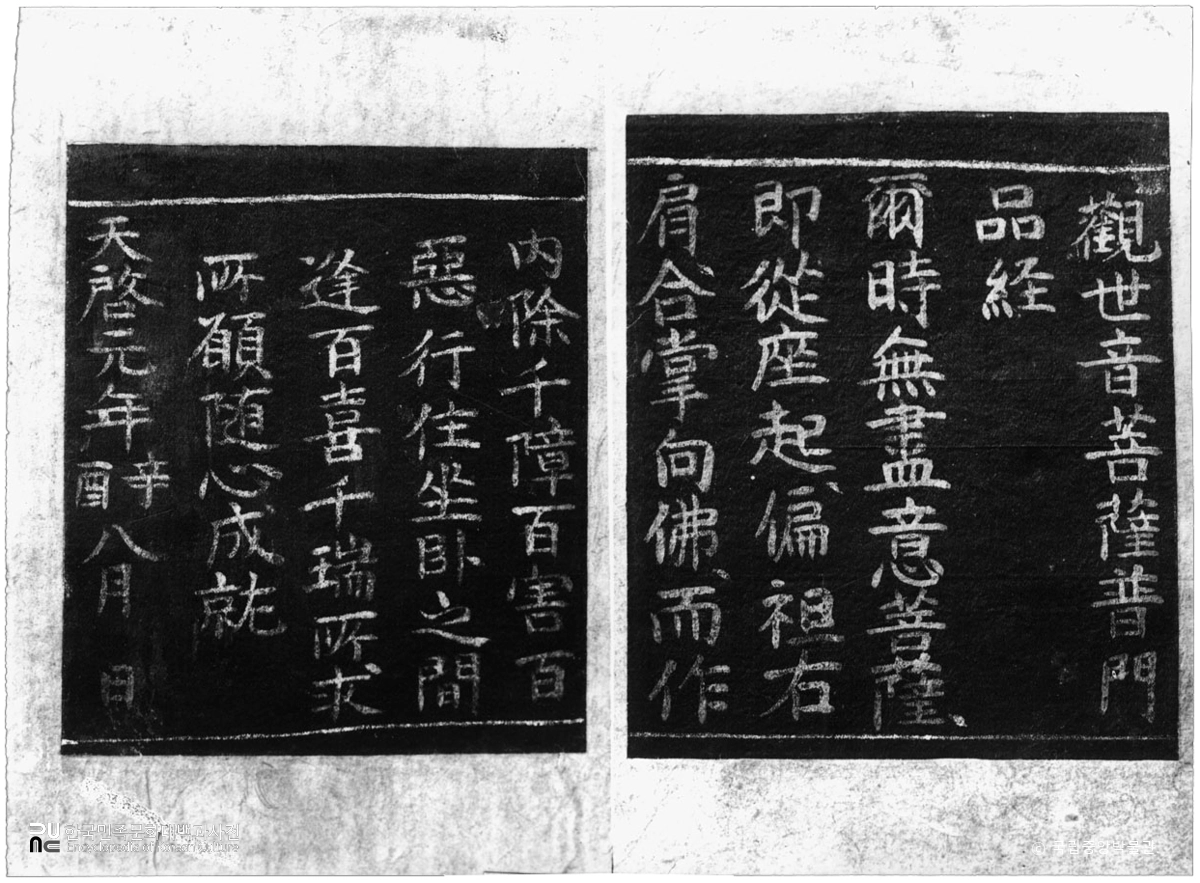 觀世音菩薩普門
品経
爾時無盡意菩薩
即從座起偏袒右
肩合掌向佛而作
内除千障百害百
惡行住坐卧之間
逢百喜千瑞所求
所願随心成就
天啓元年辛酉八月 日
한국민족문화대백과사전
Encyclopedia of Korean Culture
국립중앙박물관